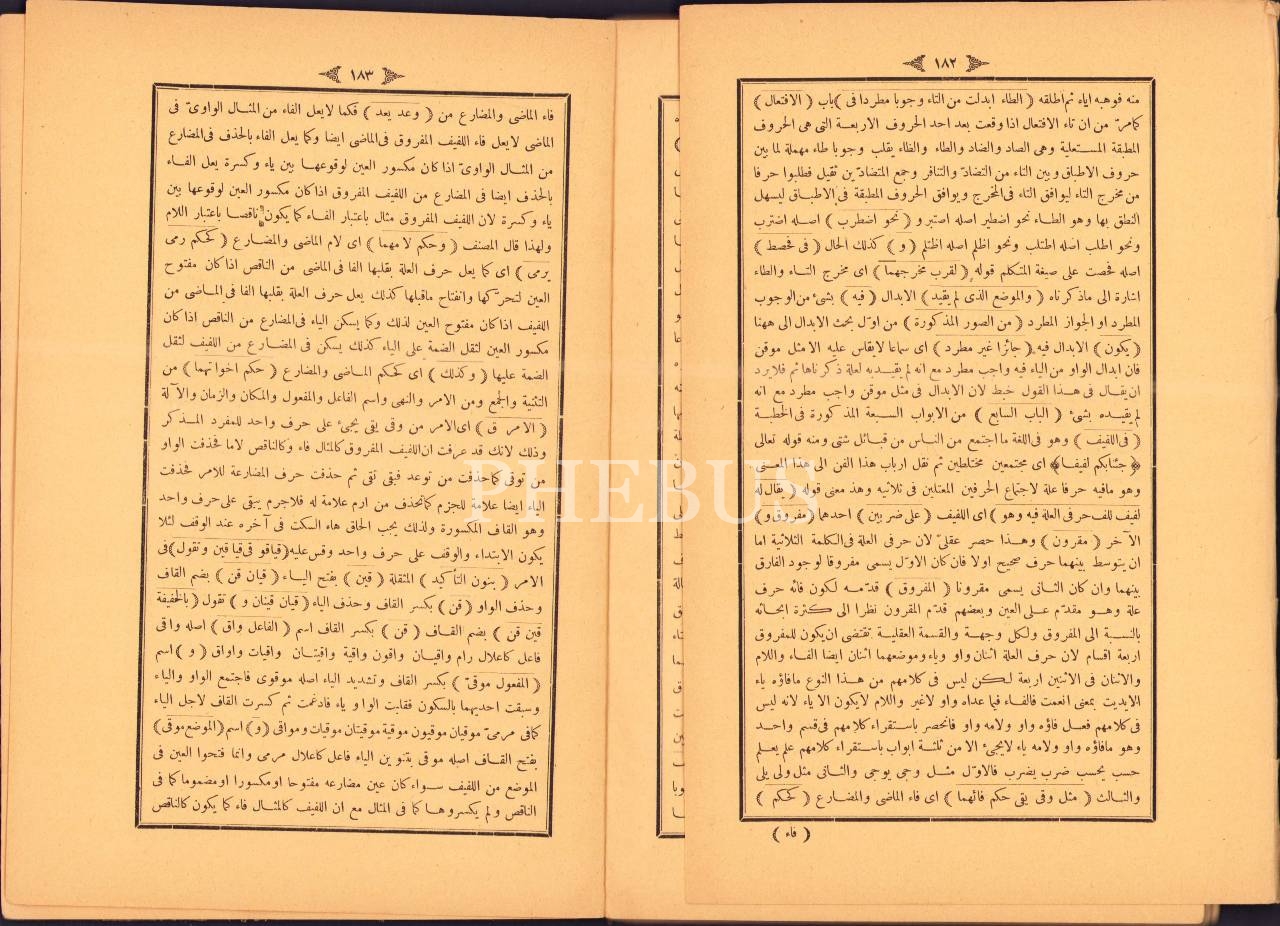 ١٨٢
منه فوهبه اياه ثم اطلقه ( الطاء ابدلت من التاء وجوبا مطردا فى ) باب ( الافتعال )
كما مرّ من ان تاء الافتعال اذا وقعت بعد احد الحروف الاربعة التى هى الحروف
المطبقة المستعلية وهى الصاد والضاد والطاء والظاء يقلب وجوبا طاء مهملة لما بين
حروف الاطباق وبين التاء من التضادّ والتنافر وجمع المتضادّين ثقيل فطلبوا حرفا
من مخرج التاء ليوافق التاء فى المخرج ويوافق الحروف المطبقة فى الاطباق ليسهل
النطق بها وهو الطاء نحو اصطبر اصله اصتبر و ( نحو اضطرب ) اصله اضترب
ونحو اطلب اصله اطتلب ونحو اظلم اصله اظتلم ( و ) كذلك الحال ( فى فحصط )
اصله فحصت على صيغة المتكلم قوله ( لقرب مخرجهما ) اى مخرج التاء والطاء
اشارة الى ماذكرناه ( والموضع الذى لم يقيد ) الابدال ( فيه ) بشئ من الوجوب
المطرد او الجواز المطرد ( من الصور المذكورة ) من اوّل بحث الابدال الى ههنا
( يكون ) الابدال فيه ( جائزا غير مطرد ) اى سماعا لايقاس عليه الا مثل موقن
فان ابدال الواو من الياء فيه واجب مطرد مع انه لم يقيد به لعلة ذكرناها ثم فلا يرد
ان يقال فى هذا القول خبط لان الابدال فى مثل موقن واجب مطرد مع انه
لم يقيده بشئ ( الباب السابع ) من الابواب السبعة المذكورة فى الخطبة
( فى اللفيف ) وهو فى اللغة ما اجتمع من الناس من قبائل شتى ومنه قوله تعالى
﴿ جئنابكم لفيفا ﴾ اى مجتمعين مختلطين ثم نقل ارباب هذا الفن الى هذا المعنى
وهو مافيه حرفا علة لاجتماع الحرفين المعتلين فى ثلاثيه وهذ معنى قوله ( يقال له
لفيف للف حرفى العلة فيه وهو ) اى اللفيف ( على ضربين ) احدهما ( مفروق و )
الآخر ( مقرون ) وهذا حصر عقلىّ لان حرفى العلة فى الكلمة الثلاثية اما
ان يتوسط بينهما حرف صحيح اولا فان كان الاوّل يسمى مفروقا لوجود الفارق
بينهما وان كان الثانى يسمى مقرونا ( المفروق ) قدّمه لكون فائه حرف
علة وهو مقدّم على العين وبعضهم قدّم المقرون نظرا الى كثرة ابحاثه
بالنسبة الى المفروق ولكل وجهة والقسمة العقلية تقتضى ان يكون للمفروق
اربعة اقسام لان حرف العلة اثنان واو وياء وموضعهما اثنان ايضا الفاء واللام
والاثنان فى الاثنين اربعة لكن ليس فى كلامهم من هذا النوع مافاؤه ياء
الايديت بمعنى انعمت فالفاء فيما عداه واو لاغير واللام لايكون الا ياء لانه ليس
فى كلامهم فعل فاؤه واو ولامه واو فانحصر باستقراء كلامهم فى قسم واحد
وهو مافاؤه واو ولامه ياء لايجئ الا من ثلثة ابواب باستقراء كلامهم علم يعلم
حسب يحسب ضرب يضرب فالاوّل مثل وجى يوجى والثانى مثل ولى يلى
والثالث ( مثل وقى يقى حكم فائهما ) اى فاء الماضى والمضارع ( كحكم )
( فاء )
١٨٣
فاء الماضى والمضارع من ( وعد يعد ) فكما لايعل الفاء من المثال الواوىّ فى
الماضى لايعل فاء اللفيف المفروق فى الماضى ايضا وكما يعل الفاء بالحذف فى المضارع
من المثال الواوىّ اذا كان مكسور العين لوقوعها بين ياء وكسرة يعل الفاء
بالحذف ايضا فى المضارع من اللفيف المفروق اذا كان مكسور العين لوقوعها بين
ياء وكسرة لان اللفيف المفروق مثال باعتبار الفاء كما يكون ناقصا باعتبار اللام
ولهذا قال المصنف ( وحكم لامهما ) اى لام الماضى والمضارع ( كحكم رمى
يرمى ) اى كما يعل حرف العلة بقلبها الفا فى الماضى من الناقص اذا كان مفتوح
العين لتحرّكها وانفتاح ماقبلها كذلك يعل حرف العلة بقلبها الفا فى الماضى من
اللفيف اذا كان مفتوح العين لذلك وكما يسكن الياء فى المضارع من الناقص اذا كان
مكسور العين لثقل الضمة على الياء كذلك يسكن فى المضارع من اللفيف لثقل
الضمة عليها ( وكذلك ) اى كحكم الماضى والمضارع ( حكم اخواتهما ) من
التثنية والجمع ومن الامر والنهى واسم الفاعل والمفعول والمكان والزمان والآلة
( الامر ق ) اى الامر من وقى يقى يجئ على حرف واحد للمفرد المذكر
وذلك لانك قد عرفت ان اللفيف المفروق كالمثال فاء وكالناقص لاما فحذفت الواو
من توقى كما حذفت من توعد فبقى تقى ثم حذفت حرف المضارعة للامر فحذفت
الياء ايضا علامة للجزم كما تحذف من ارم علامة له فلا جرم يبقى على حرف واحد
وهو القاف المكسورة ولذلك يجب الحاق هاء السكت فى آخره عند الوقف لئلا
يكون الابتداء والوقف على حرف واحد وقس عليه ( قيا قو فى قيا قين وتقول ) فى
الامر ( بنون التأكيد ) المثقلة ( قين ) بفتح الياء ( قيان قن ) بضم القاف
وحذف الواو ( قن ) بكسر القاف وحذف الياء ( قيان قينان و ) تقول ( بالخفيفة
قين قن ) بضم القاف ( قن ) بكسر القاف اسم ( الفاعل واق ) اصله واقى
فاعل كاعلال رام واقيان واقون واقية واقيتان واقيات واواق ( و ) اسم
( المفعول موقىّ ) بكسر القاف وتشديد الياء اصله موقوى فاجتمع الواو والياء
وسبقت احديهما بالسكون فقلبت الواو ياء فادغمت ثم كسرت القاف لاجل الياء
كما فى مرمىّ موقيان موقيون موقية موقيتان موقيات ومواقى ( و ) اسم ( الموضع موقى )
بفتح القاف اصله موقى بتنوين الياء فاعل كاعلال مرمى وانما فتحوا العين فى
الموضع من اللفيف سواء كان عين مضارعه مفتوحا او مكسورا او مضموما كما فى
الناقص ولم يكسروها كما فى المثال مع ان اللفيف كالمثال فاء كما يكون كالناقص
PHEBUS